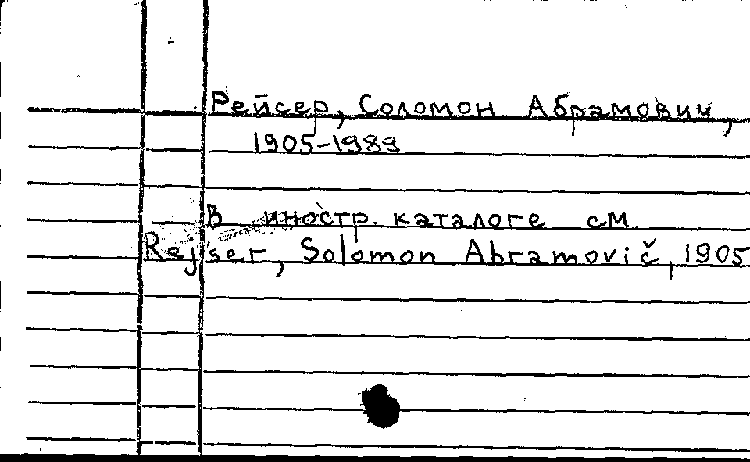 Рейсер, Соломон Абрамович,
1905-1989
В иностр. каталоге см.
Rejser, Solomon Abramovič, 1905